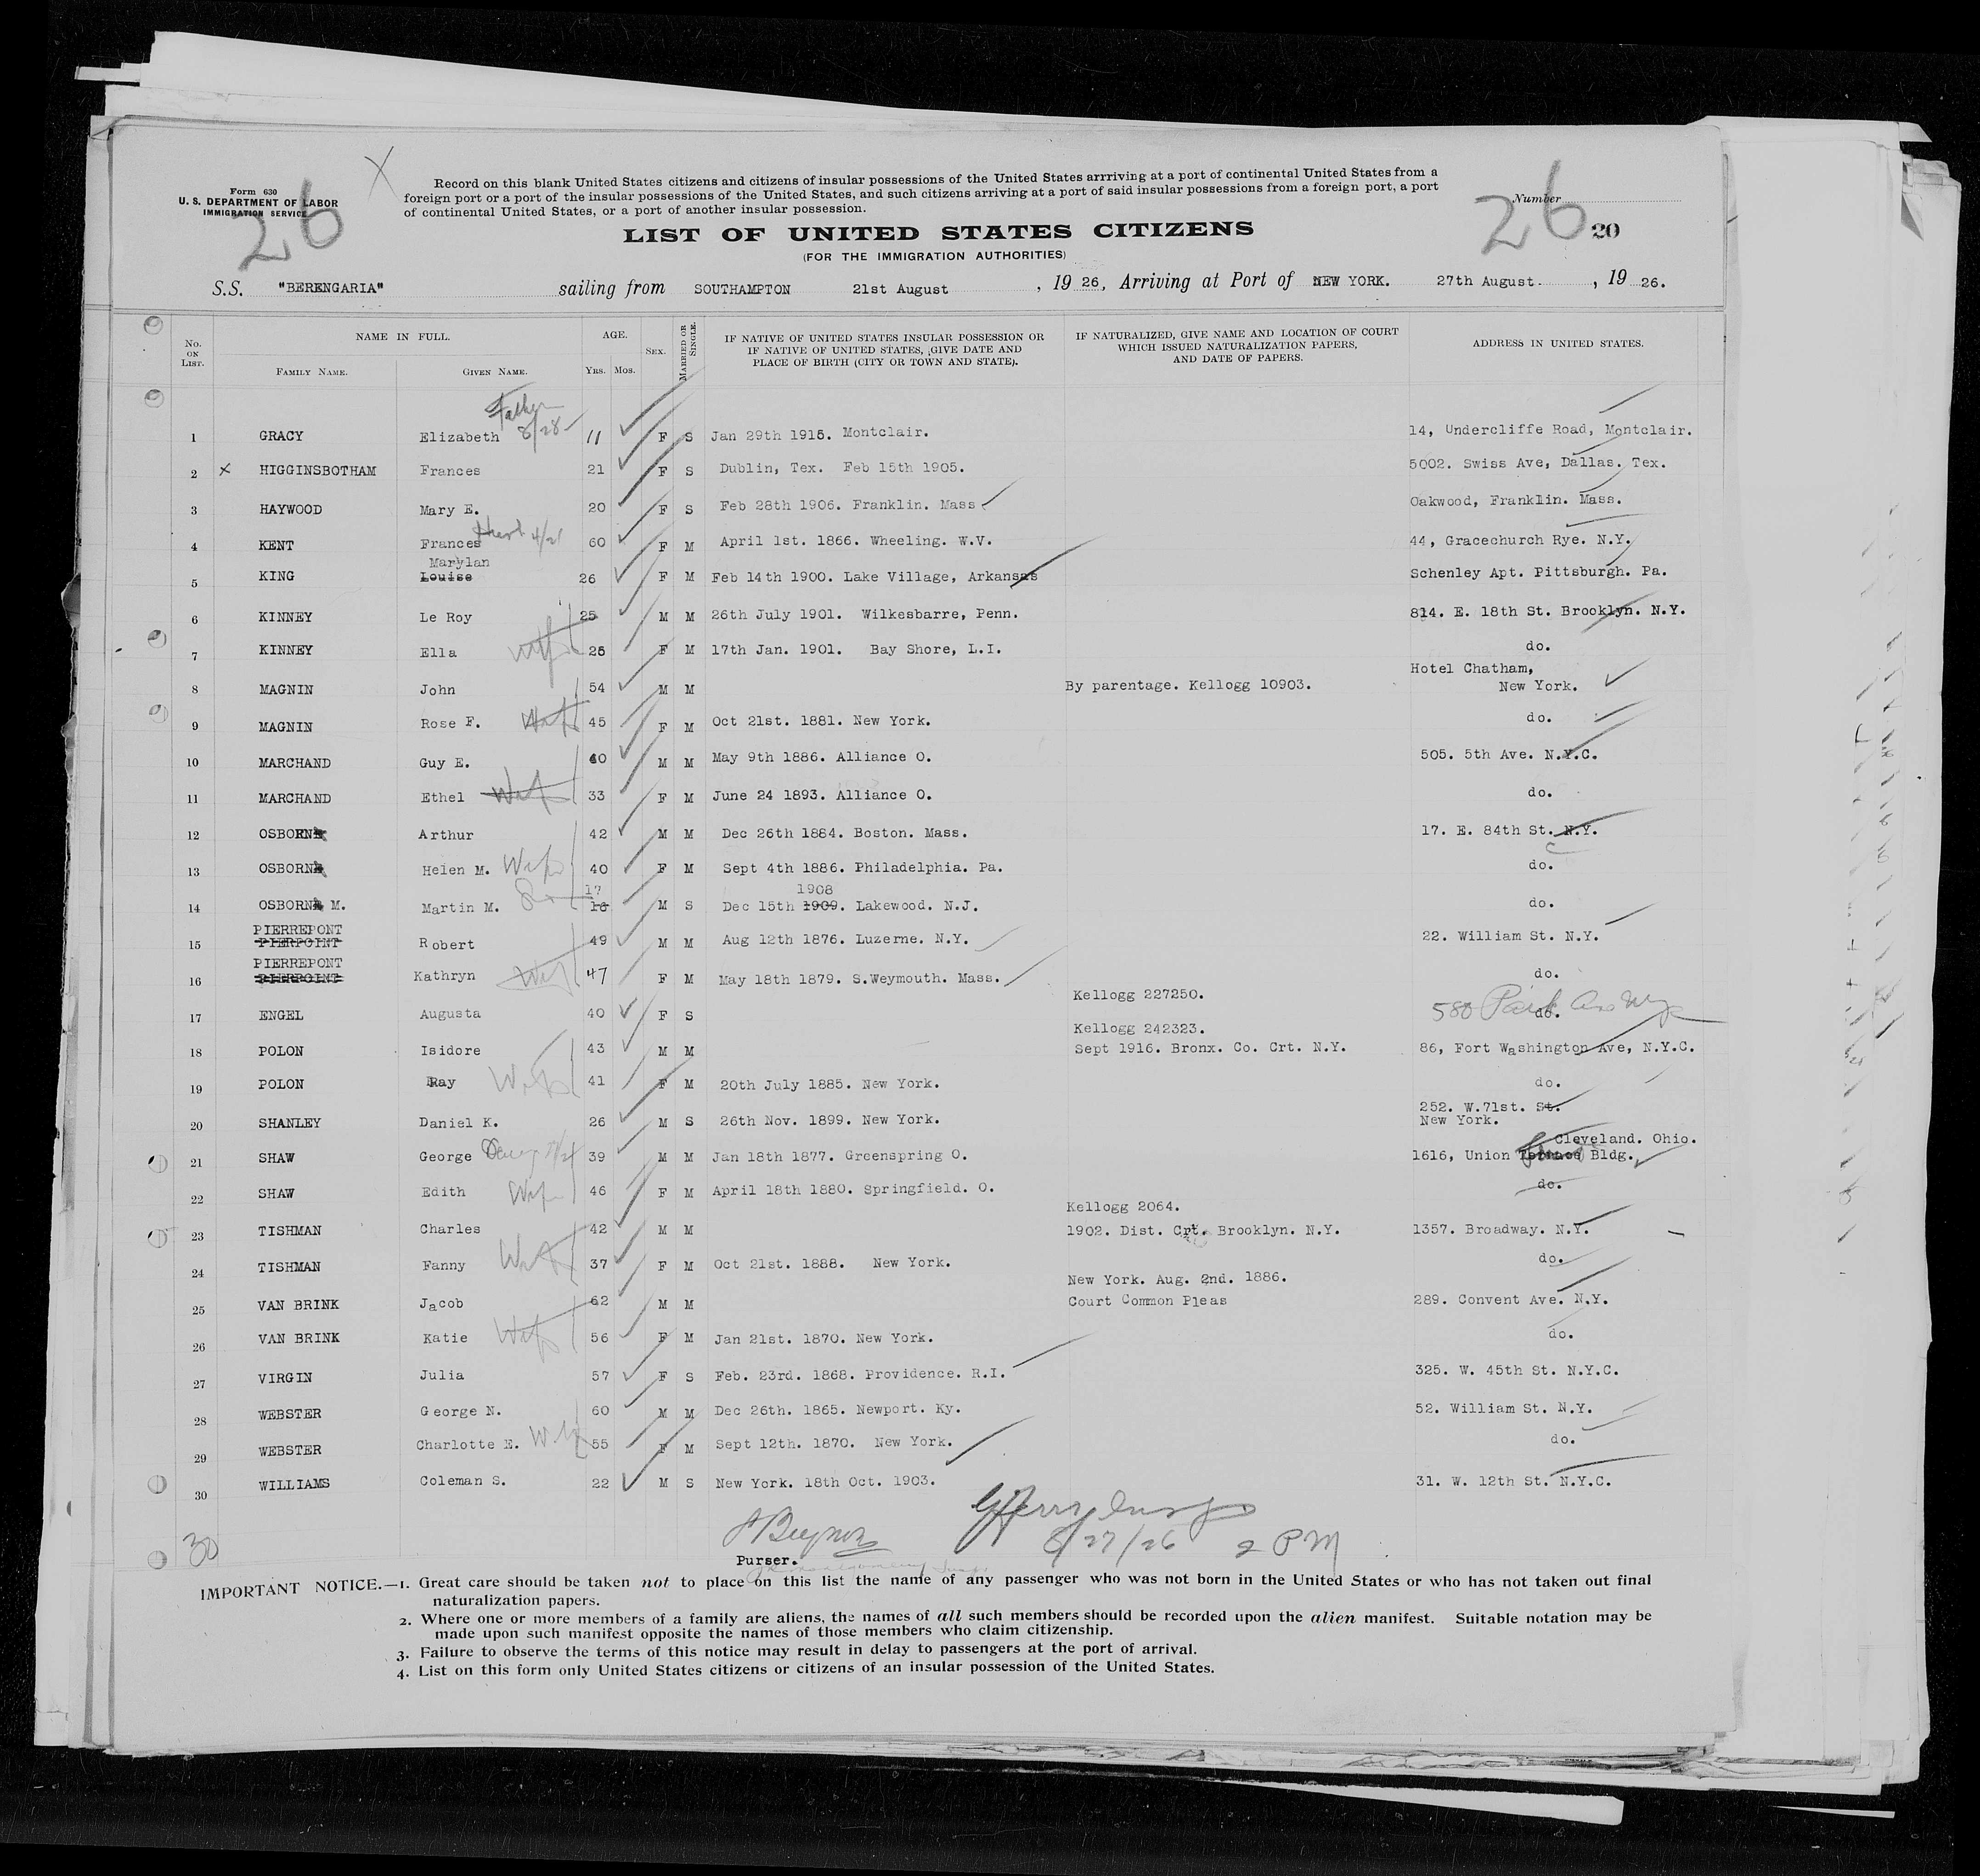 Form 630
U. S. DEPARTMENT OF LABOR
IMMIGRATION SERVICE
26
X
Record on this blank United States citizens and citizens of insular possessions of the United States arrriving at a port of continental United States from a
foreign port or a port of the insular possessions of the United States, and such citizens arriving at a port of said insular possessions from a foreign port, a port
of continental United States, or a port of another insular possession.
Number
26
20
LIST OF UNITED STATES CITIZENS
(FOR THE IMMIGRATION AUTHORITIES)
S.S. "BERENGARIA" sailing from SOUTHAMPTON 21st August, 19 26, Arriving at Port of NEW YORK. 27th August, 19 26.
No. ON LIST. NAME IN FULL. FAMILY NAME. GIVEN NAME. AGE. YRS. MOS. SEX. MARRIED OR SINGLE. IF NATIVE OF UNITED STATES INSULAR POSSESSION OR IF NATIVE OF UNITED STATES, GIVE DATE AND PLACE OF BIRTH (CITY OR TOWN AND STATE). IF NATURALIZED, GIVE NAME AND LOCATION OF COURT WHICH ISSUED NATURALIZATION PAPERS, AND DATE OF PAPERS. ADDRESS IN UNITED STATES.
Father
8/28
1 GRACY Elizabeth 11 F S Jan 29th 1915. Montclair. 14, Undercliffe Road, Montclair.
2 x HIGGINSBOTHAM Frances 21 F S Dublin, Tex. Feb 15th 1905. 5002. Swiss Ave, Dallas. Tex.
3 HAYWOOD Mary E. 20 F S Feb 28th 1906. Franklin. Mass Oakwood, Franklin. Mass.
4 KENT Frances 60 F M April 1st. 1866. Wheeling. W.V. 44, Gracechurch Rye. N.Y.
Marylan
5 KING Louise 26 F M Feb 14th 1900. Lake Village, Arkansas Schenley Apt. Pittsburgh. Pa.
6 KINNEY Le Roy 25 M M 26th July 1901. Wilkesbarre, Penn. 814. E. 18th St. Brooklyn. N.Y.
7 KINNEY Ella wife 25 F M 17th Jan. 1901. Bay Shore, L.I. do.
Hotel Chatham,
8 MAGNIN John 54 M M By parentage. Kellogg 10903. New York.
9 MAGNIN Rose F. Wife 45 F M Oct 21st. 1881. New York. do.
10 MARCHAND Guy E. 40 M M May 9th 1886. Alliance O. 505. 5th Ave. N.Y.C.
11 MARCHAND Ethel Wife 33 F M June 24 1893. Alliance O. do.
12 OSBORN Arthur 42 M M Dec 26th 1884. Boston. Mass. 17. E. 84th St. N.Y.
C
13 OSBORN Helen M. Wife 40 F M Sept 4th 1886. Philadelphia. Pa. do.
17 1908
14 OSBORN M. Martin M. Son 16 M S Dec 15th 1909. Lakewood. N.J. do.
PIERREPONT
15 PIERPOINT Robert 49 M M Aug 12th 1876. Luzerne. N.Y. 22. William St. N.Y.
PIERREPONT
16 PIERPOINT Kathryn Wife 47 F M May 18th 1879. S.Weymouth. Mass. do.
Kellogg 227250.
17 ENGEL Augusta 40 F S do. 580 Park Ave NYC
Kellogg 242323.
18 POLON Isidore 43 M M Sept 1916. Bronx. Co. Crt. N.Y. 86, Fort Washington Ave, N.Y.C.
19 POLON Ray Wife 41 F M 20th July 1885. New York. do.
252. W.71st. St.
20 SHANLEY Daniel K. 26 M S 26th Nov. 1899. New York. New York.
Cleveland. Ohio.
21 SHAW George 39 M M Jan 18th 1877. Greenspring O. 1616, Union Bldg.
22 SHAW Edith Wife 46 F M April 18th 1880. Springfield. O. do.
Kellogg 2064.
23 TISHMAN Charles 42 M M 1902. Dist. Crt. Brooklyn. N.Y. 1357. Broadway. N.Y.
24 TISHMAN Fanny Wife 37 F M Oct 21st. 1888. New York. do.
New York. Aug. 2nd. 1886.
25 VAN BRINK Jacob 62 M M Court Common Pleas 289. Convent Ave. N.Y.
26 VAN BRINK Katie Wife 56 F M Jan 21st. 1870. New York. do.
27 VIRGIN Julia 57 F S Feb. 23rd. 1868. Providence. R.I. 325. W. 45th St. N.Y.C.
28 WEBSTER George N. 60 M M Dec 26th. 1865. Newport. Ky. 52. William St. N.Y.
29 WEBSTER Charlotte E. Wife 55 F M Sept 12th. 1870. New York. do.
30 WILLIAMS Coleman S. 22 M S New York. 18th Oct. 1903. 31. W. 12th St. N.Y.C.
30
8/27/26 2 PM
Purser.
IMPORTANT NOTICE.—1. Great care should be taken not to place on this list the name of any passenger who was not born in the United States or who has not taken out final
naturalization papers.
2. Where one or more members of a family are aliens, the names of all such members should be recorded upon the alien manifest. Suitable notation may be
made upon such manifest opposite the names of those members who claim citizenship.
3. Failure to observe the terms of this notice may result in delay to passengers at the port of arrival.
4. List on this form only United States citizens or citizens of an insular possession of the United States.